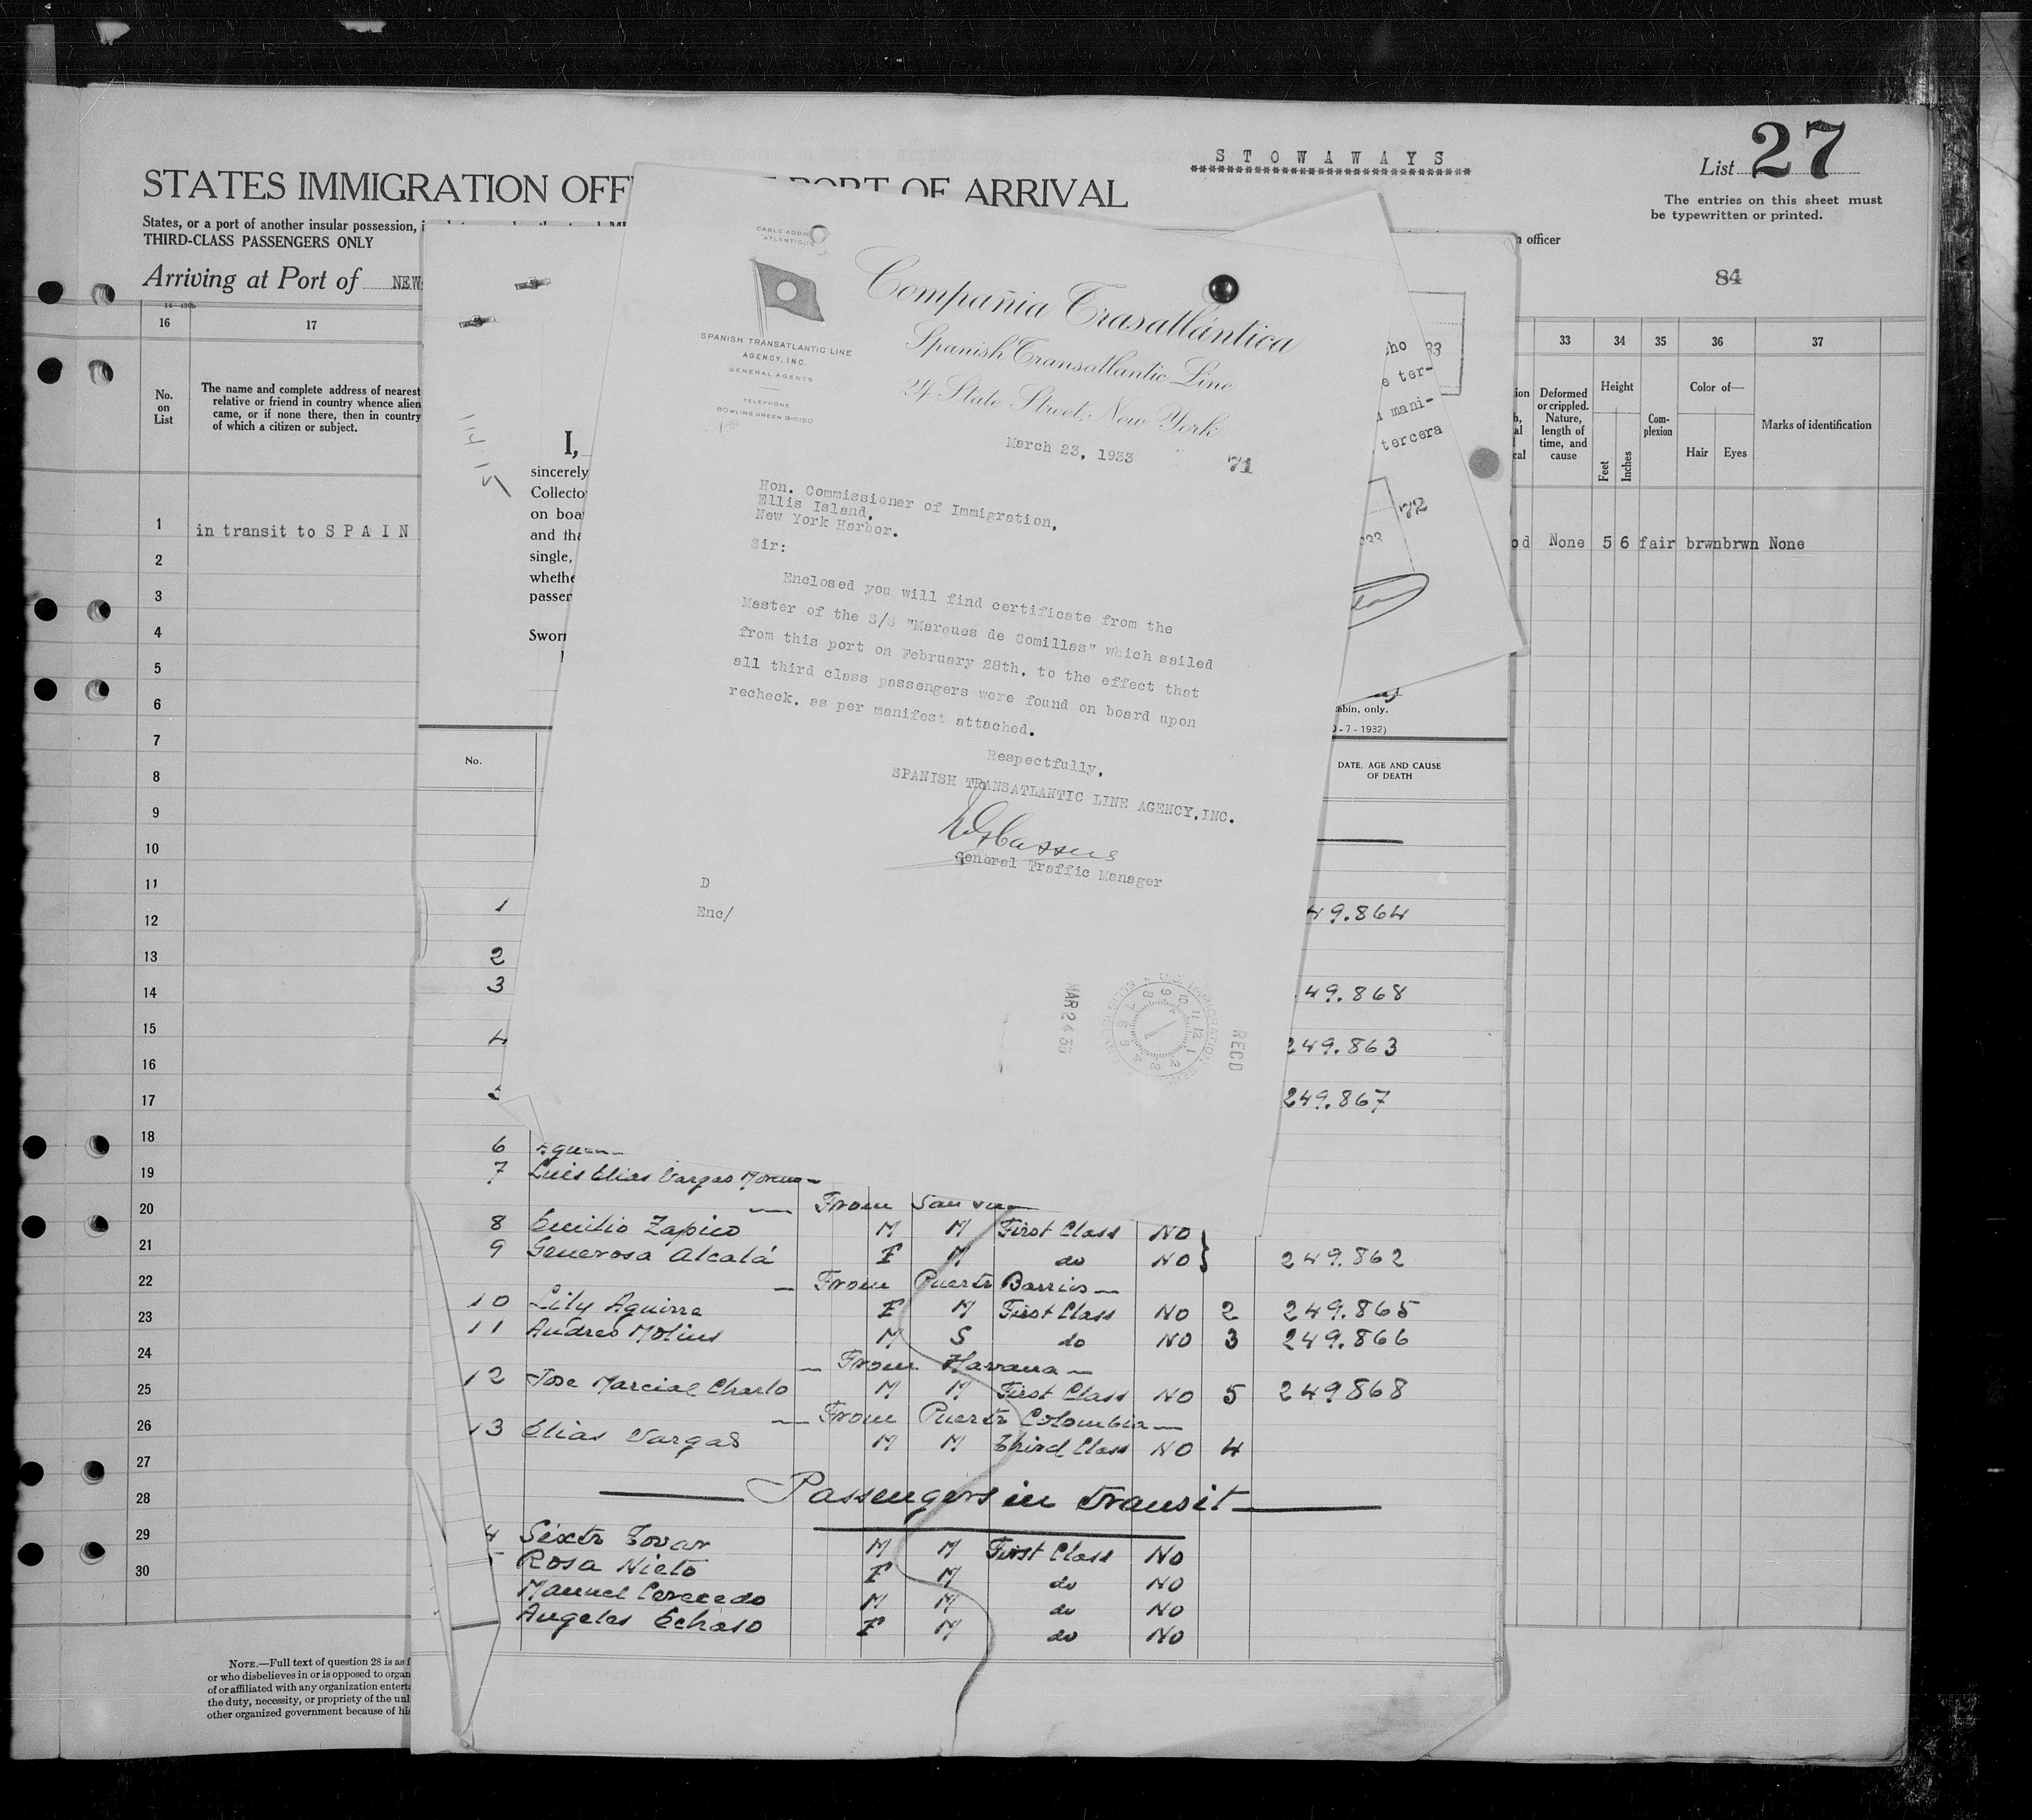 STOWAWAYS
****************************
List 27
The entries on this sheet must
be typewritten or printed.
STATES IMMIGRATION OFF
PORT OF ARRIVAL
States, or a port of another insular possession,
THIRD-CLASS PASSENGERS ONLY
officer
84
Arriving at Port of NEW
14-430b
16 17
No.
on
List
The name and complete address of nearest
relative or friend in country whence alien
came, or if none there, then in country
of which a citizen or subject.
33 34 35 36 37
Deformed
or crippled.
Nature,
length of
time, and
cause
Height
Feet
Inches
Com-
plexion
Color of—
Hair
Eyes
Marks of identification
1 in transit to SPAIN
od None 5 6 fair brwn brwn None
2
3
4
5
6
7
8
9
10
11
12
13
14
15
16
17
18
19
20
21
22
23
24
25
26
27
28
29
30
NOTE.—Full text of question 28 is as f
or who disbelieves in or is opposed to organ
of or affiliated with any organization entert
the duty, necessity, or propriety of the unl
other organized government because of hi
I,
sincerely
Collecto
on boa
and tha
single,
whethe
passen
Sworn
CABLE ADDR
ATLANTIQUE
SPANISH TRANSATLANTIC LINE
AGENCY, INC.
GENERAL AGENTS
TELEPHONE
BOWLING GREEN 9-5150
Compañia Trasatlántica
Spanish Transatlantic Line
24 State Street, New York
March 23, 1933
71
Hon. Commissioner of Immigration,
Ellis Island,
New York Harbor.
Sir:
Enclosed you will find certificate from the
Master of the S/S "Marques de Comillas" which sailed
from this port on February 28th, to the effect that
all third class passengers were found on board upon
recheck, as per manifest attached.
Respectfully,
SPANISH TRANSATLANTIC LINE AGENCY, INC.
General Traffic Manager
D
Enc/
MAR 24 33
RECD
cho
33
e ter-
mani-
tercera
72
cabin, only.
- 7 - 1932)
No.
DATE, AGE AND CAUSE
OF DEATH
1 49.864
2
3 49.868
4 249.863
5 249.867
6
7 Luis Elias Vargas Moreno
— From San
8 Emilio Zapico M M First Class NO
9 Generosa Alcalá F M do NO } 249.862
— From Puerto Barrios —
10 Lily Aguirre F M First Class NO 2 249.865
11 Andres Molins M S do NO 3 249.866
— From Havana —
12 Jose Marcial Charlo M M First Class NO 5 249868
— From Puerto Colombia —
13 Elias Vargas M M Third Class NO 4
Passengers in transit
4 Sixto Tovar M M First Class NO
Rosa Nieto F M do NO
Manuel Cereceda M M do NO
Angeles Echaso F M do NO